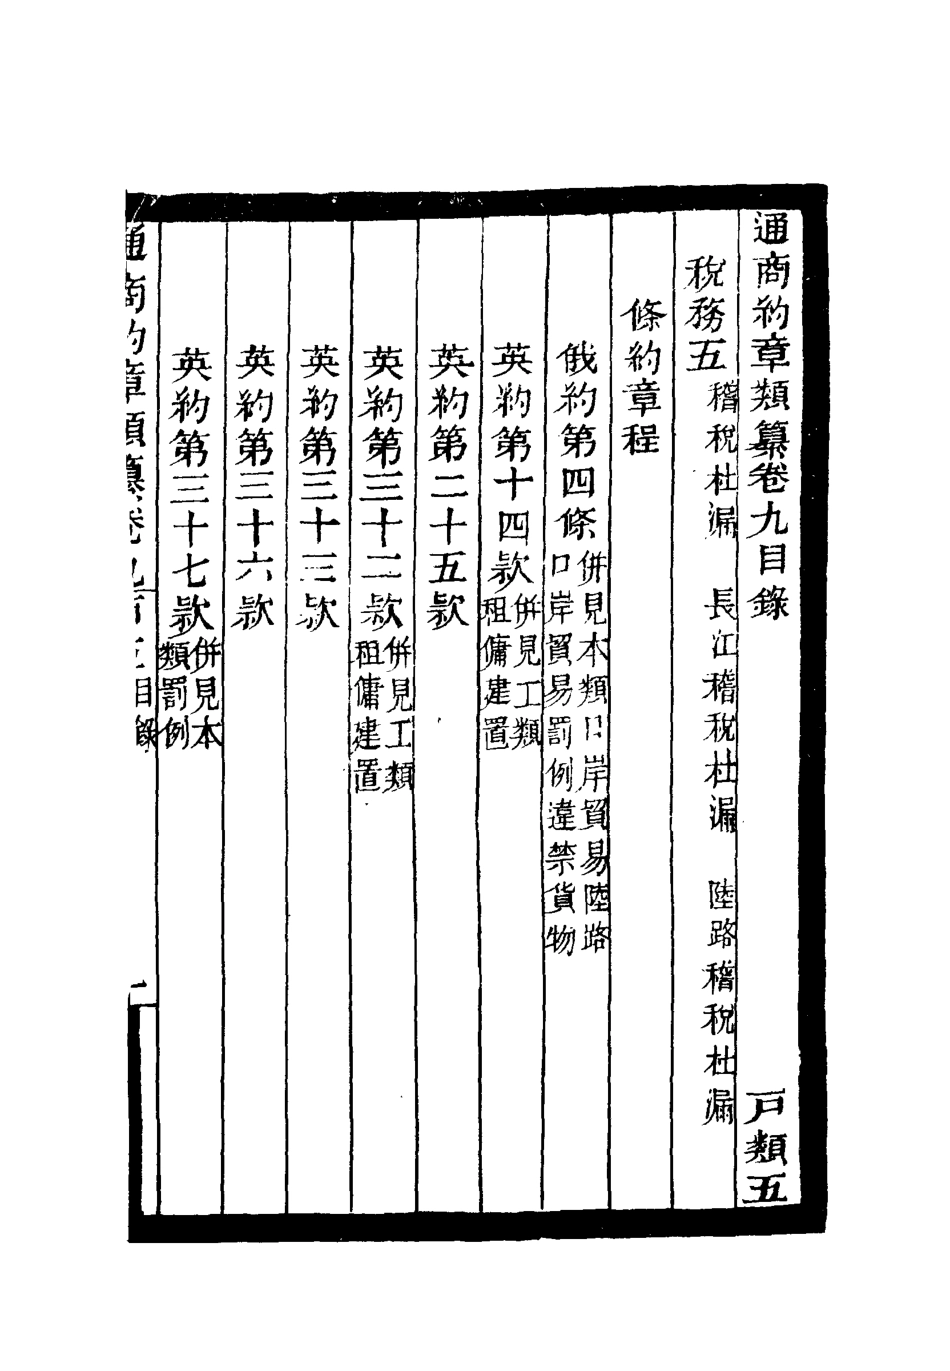 通商約章類纂卷九目錄　戶類五
稅務五　稽稅杜漏　長江稽稅杜漏　陸路稽稅杜漏
條約章程
俄約第四條 併見本類口岸貿易陸路口岸貿易罰例違禁貨物
英約第十四款 併見工類租傭建置
英約第二十五款
英約第三十二款 併見工類租傭建置
英約第三十三款
英約第三十六款
英約第三十七款 併見本類罰例
通商約章類纂卷九 目錄 一